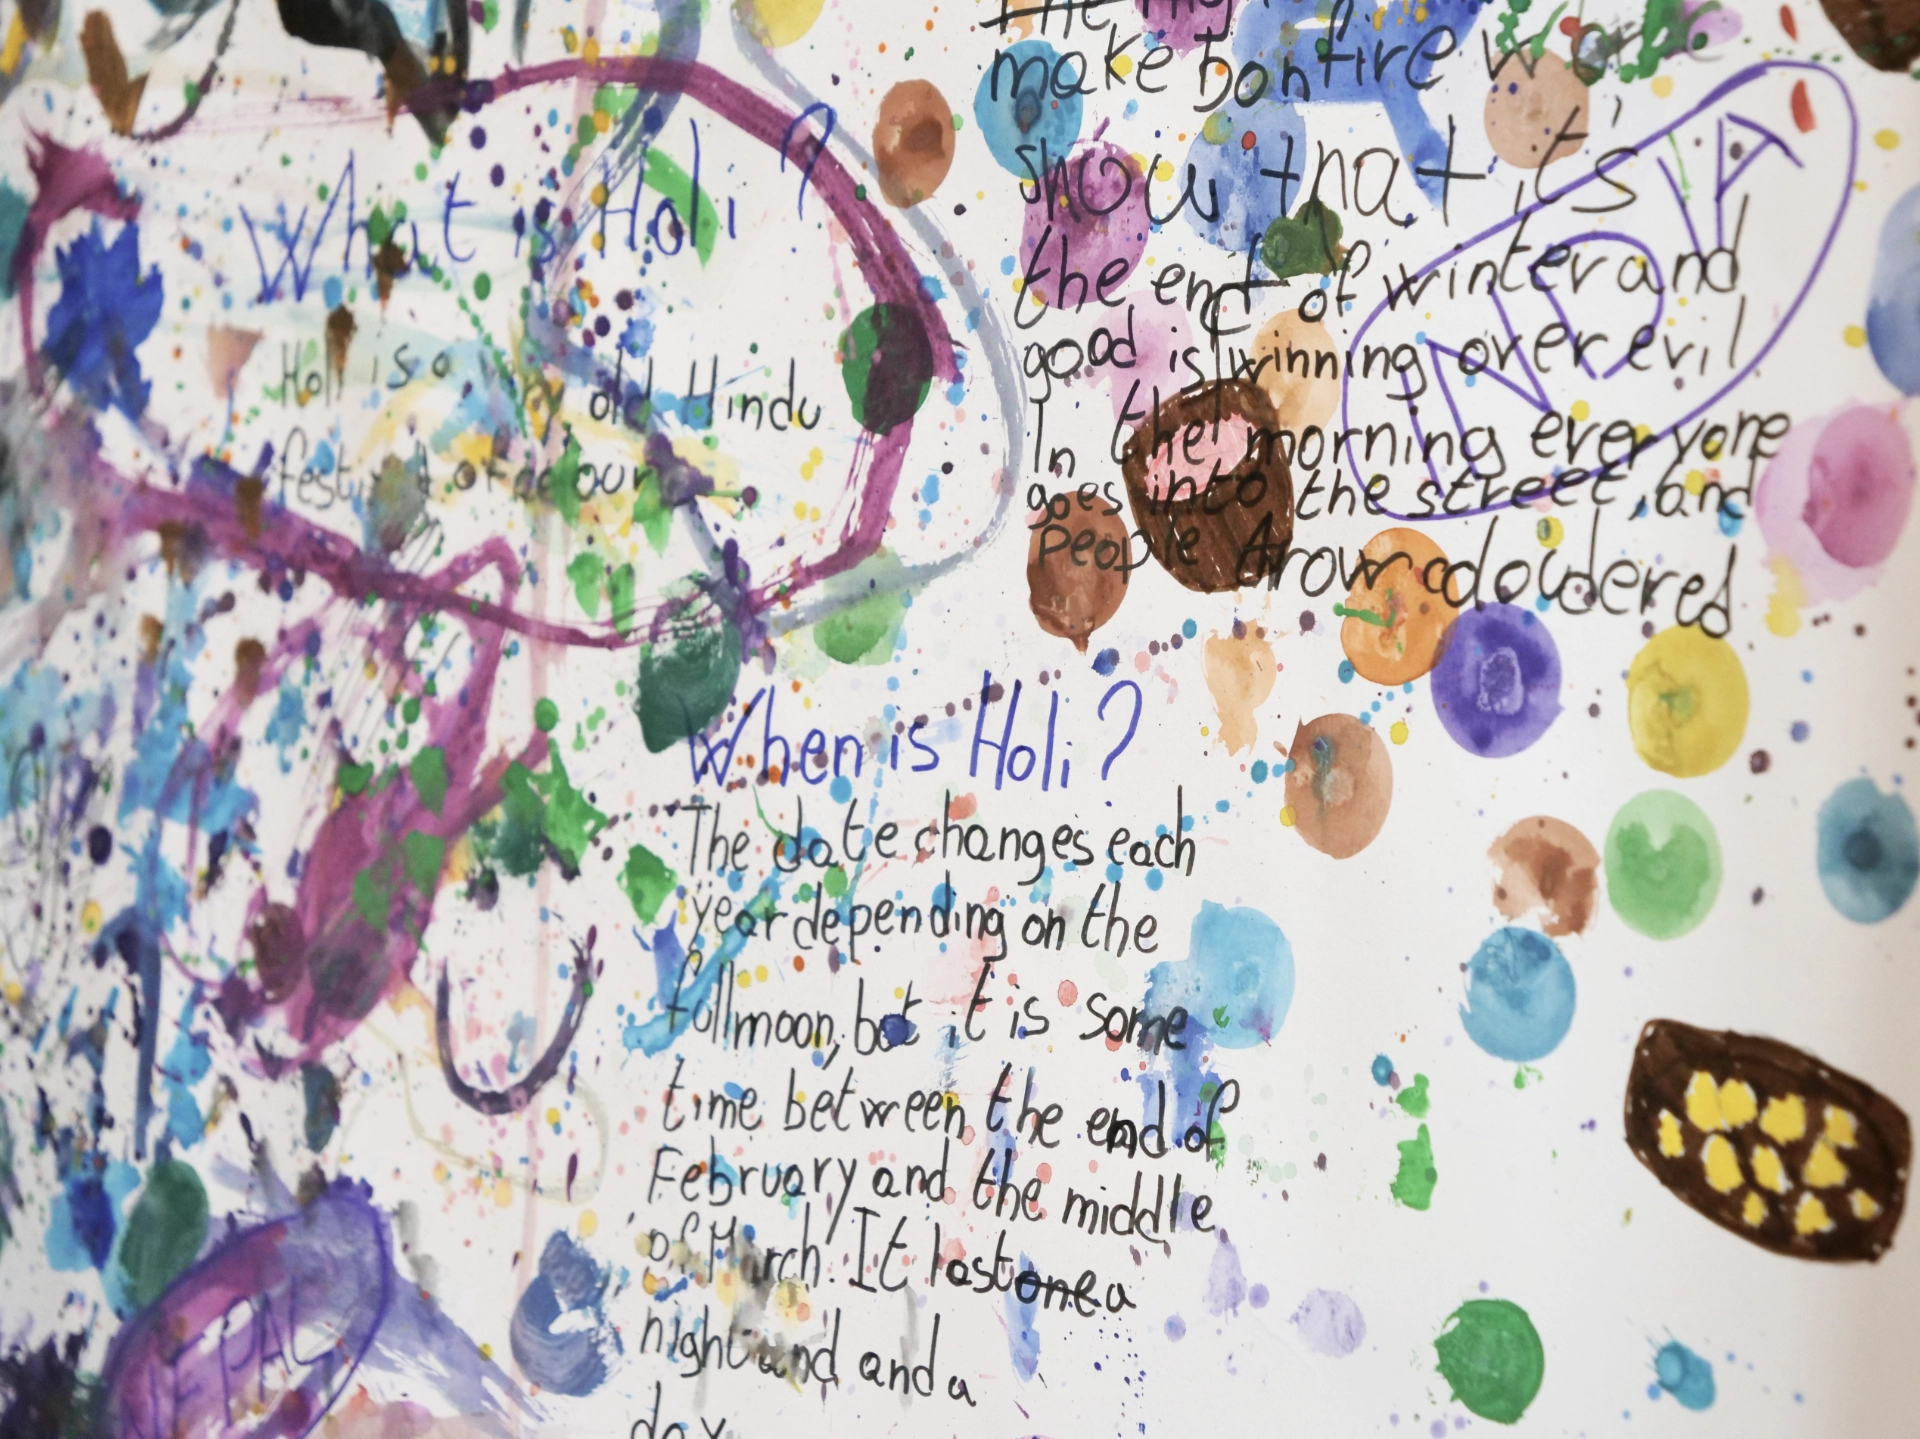 What is Holi?
Holi is a very old Hindu
festival of colour
make bonfire
show that it's
the end of winter and
good is winning over evil
In the morning everyone
goes into the street, and
People
INDIA
When is Holi?
The date changes each
year depending on the
full moon, but it is some
time between the end of
February and the middle
of March. It last one a
night and and a
day
NEPAL